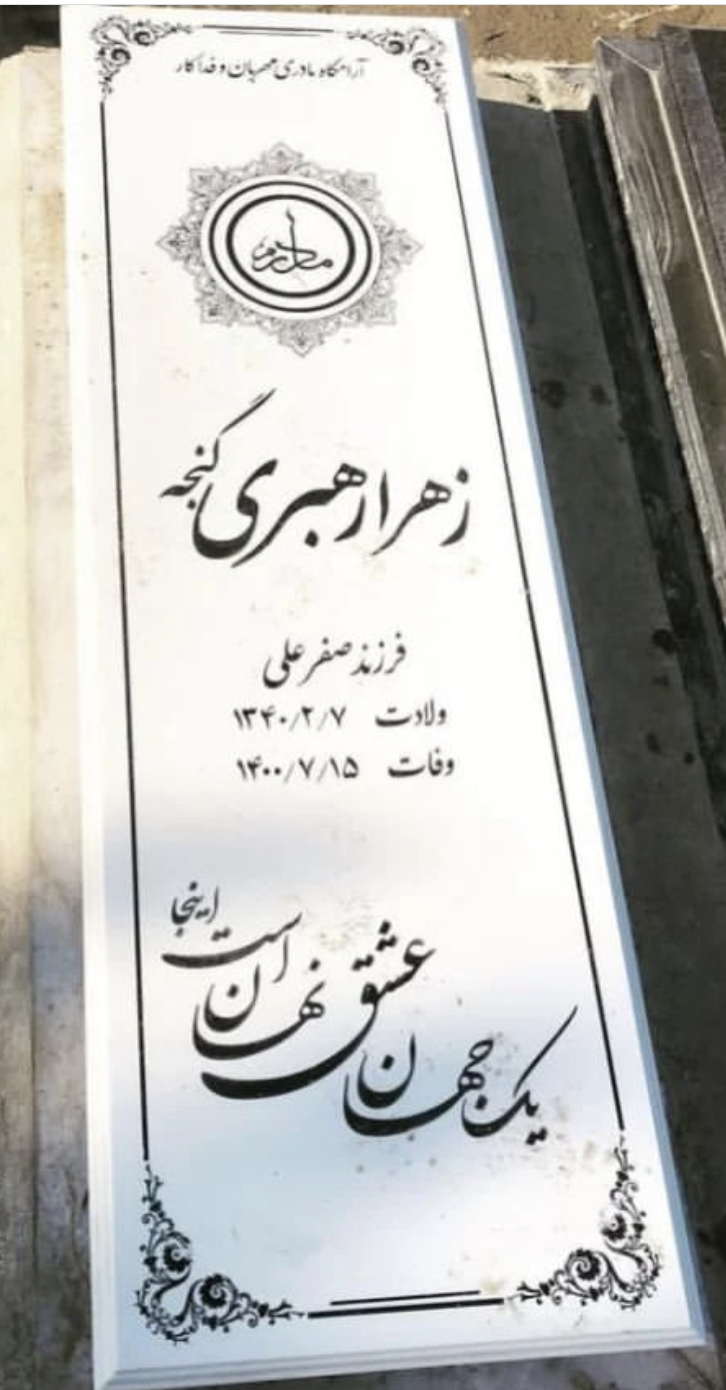 آرامگاه مادری مهربان و فداکار
مادرم
زهرا رهبری گنجه
فرزند صفرعلی
ولادت ۱۳۴۰/۲/۷
وفات ۱۴۰۰/۷/۱۵
یک جهان عشق نهان است اینجا